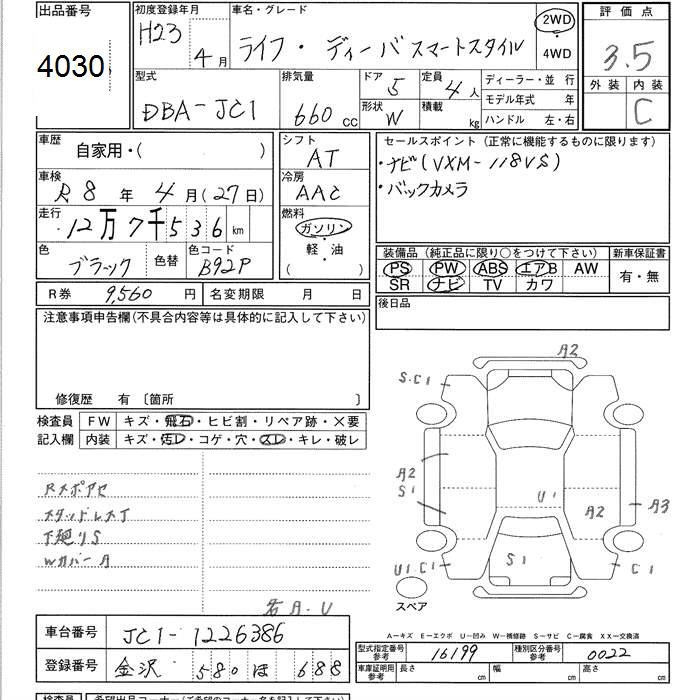 出品番号
4030
初度登録年月
H23 4月
車名・グレード
ライフ・ディーバスマートスタイル
2WD
・
4WD
評価点
3.5
外装 内装
C
型式
DBA-JC1
排気量
660 cc
ドア 5
形状 W
定員 4人
積載 kg
ディーラー・並行
モデル年式 年
ハンドル 左・右
車歴
自家用・( )
車検
R8年 4月(27日)
走行
12万7千536km
色
ブラック
色替
色コード
B92P
シフト
AT
冷房
AAC
燃料
ガソリン
・
軽・油
( )
セールスポイント(正常に機能するものに限ります)
・ナビ(VXM-118VS)
・バックカメラ
装備品(純正品に限り○をつけて下さい)
PS PW ABS エアB AW
SR ナビ TV カワ
新車保証書
有・無
R券 9,560円
名変期限 月 日
後日品
注意事項申告欄(不具合内容等は具体的に記入して下さい)
修復歴 有〔箇所 〕
検査員
記入欄
FW キズ・飛石・ヒビ割・リペア跡・×要
内装 キズ・汚レ・コゲ・穴・スレ・キレ・破レ
スタッドレスT
下廻りS
WカバーA
A2
S.C1
A2
S1
U1
A2
A3
S1
U1.C1
C1
スペア
A-キズ E-エクボ U-凹み W-補修跡 S-サビ C-腐食 XX-交換済
車台番号 JC1-1226386
登録番号 金沢 580 ほ 688
型式指定番号
参考
16199
種別区分番号
参考
0022
車庫証明用
参考
長さ 幅 高さ